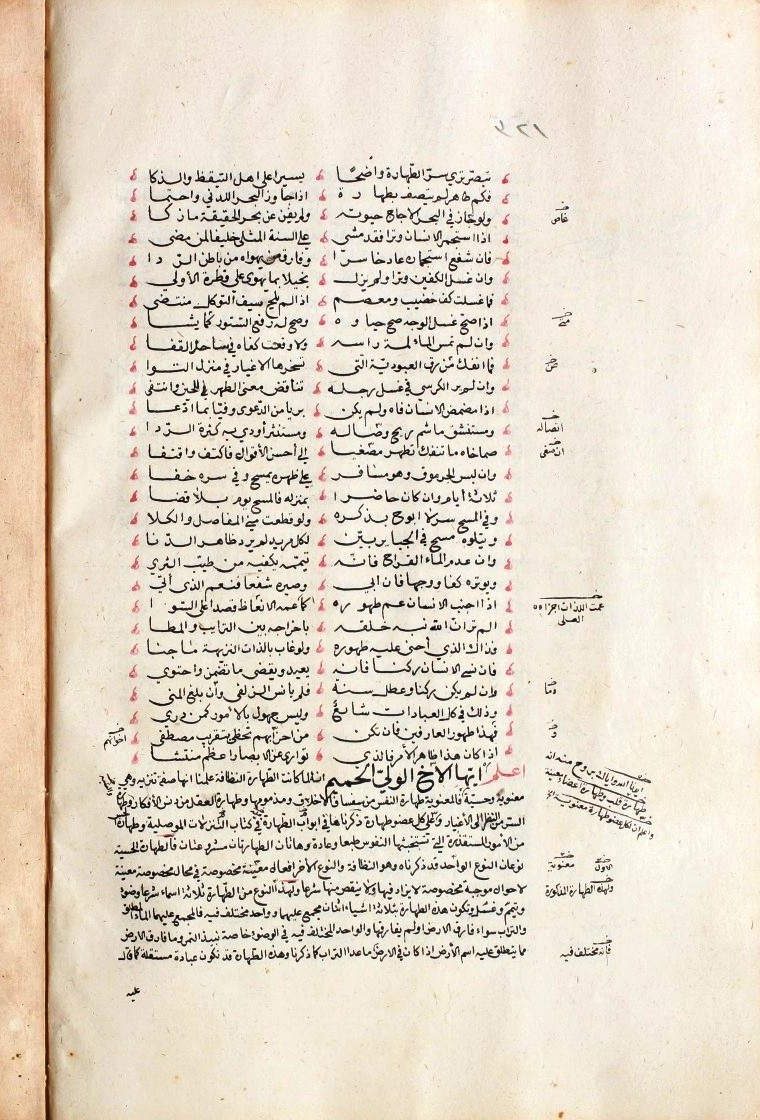 ٣٢١
تبصر ترى سر الطهارة واضحا يسيرا على اهل التيقظ والذكا
فكم طاهر لم يتصف بطهارة اذا جاوز البحر اللدني واحتمى
ولو غاص في البحر الاجاج حيوته ولم يفن عن بحر الحقيقة ما زكا
اذا استجمر الانسان وترا فقد مشى على السنة المثلى حليفا لمن مضى
فان شفع استجماره عاد خاسرا وفارق من يهواه من باطن الردا
وان غسل الكفين وترا ولم يزل بخيلا بما يهوى على فطرة الأولى
فما غسلت كف خضيب ومعصم اذا لم يلح سيف التوكل منتضى
اذا صح غسل الوجه صح حياوه وصح له رفع الستور كما يشا
وان لم تمس الماء لمة راسه ولا وقعت كفاه في ساحل القفا
فما انفك من رق العبودية التي تسخرها الاغيار في منزل التوا
وان لم ير الكرسي في غسل رجله تناقض معنى الطهر في الحين وانتفى
اذا مضمض الانسان فاه ولم يكن بريا من الدعوى وفيا بما ادعا
ومستنشق ما شم ريح وصاله ومستنثر أودى به كثرة الردا
صماخاه ما تنفك تطهر مصغيا الى أحسن الأقوال فاكتف واقتفا
وان لبس الجرموق وهو مسافر على طهره يمسح وفي سره خفا
ثلاثة أيام وان كان حاضرا بمنزله فالمسح يوم بلا قضا
وفي المسح سر لا ابوح بذكره ولو قطعت مني المفاصل والكلا
ويتلوه مسح في الجباير بين لكل مريد لم يرد ظاهر الدنا
وان عدم الماء القراح فانه تيممه يكفيه من طيب الثرى
ويوتره كفا ووجها فان ابى وصيره شفعا فنعم الذي أتى
اذا اجنب الانسان عم طهوره كما عمه الانعاظ قصدا على السوا
الم تر ان الله نبه خلقه باخراجه بين الترايب والمطا
فذاك الذي أجنى عليه طهوره ولو غاب بالذات النزيهة ما جنا
فان نسي الانسان ركنا فانه يعيد ويقضي ما تضمن واحتوى
وان لم يكن ركنا وعطل سنة فلم يانس الزلفى وأن يبلغ المنى
وذلك في كل العبادات شايع وليس جهول بالامور كمن درى
فهذا طهور العارفين فان تكن من احزابهم تحظى بتقريب مصطفى
اذا كان هذا ظاهر الأمر فالذي توارى عن الابصار اعظم منتشا
اعلم ايها الاخ الولي الحميم انه لما كانت الطهارة النظافة علمنا انها صفة تنزيه وهي
معنوية وحسية فالمعنوية طهارة النفس من سفساف الاخلاق ومذمومها وطهارة العقل من دنس الأفكار وطهارة
السر من النظر الى الاغيار وعلى كل عضو طهارة ذكرناها في ابواب الطهارة في كتاب التنزلات الموصلية وطهارة
من الأمور المستقذرة التي تستخبثها النفوس طبعا وعادة وهاتان الطهارتان مشروعتان فالطهارة الحسية
نوعان النوع الواحد قد ذكرناه وهو النظافة والنوع الآخر افعال معينة مخصوصة في محال مخصوصة معينة
لاحوال موجبة مخصوصة لا يزاد فيها ولا ينقص منها شرعا ولهذا النوع من الطهارة ثلاثة اسماء شرعا وضوء
وتيمم وغسل وتكون هذه الطهارة بثلاثة اشياء اثنان مجمع عليهما وواحد مختلف فيه فالمجمع عليهما الماء الطلق
والتراب سواء فارق الارض او لم يفارقها والواحد المختلف فيه في الوضوء خاصة نبيذ التمر وما فارق الارض
مما ينطلق عليه اسم الأرض اذا كان في الارض ما عدا التراب كما ذكرنا وهذه الطهارة قد تكون عبادة مستقلة كما قال
عليه
غاص
اتصاله
عمت اللذات اجزاءه
اخوانهم
معنوية
الأول
ولهذه الطهارة المذكورة
فانه مختلف فيه